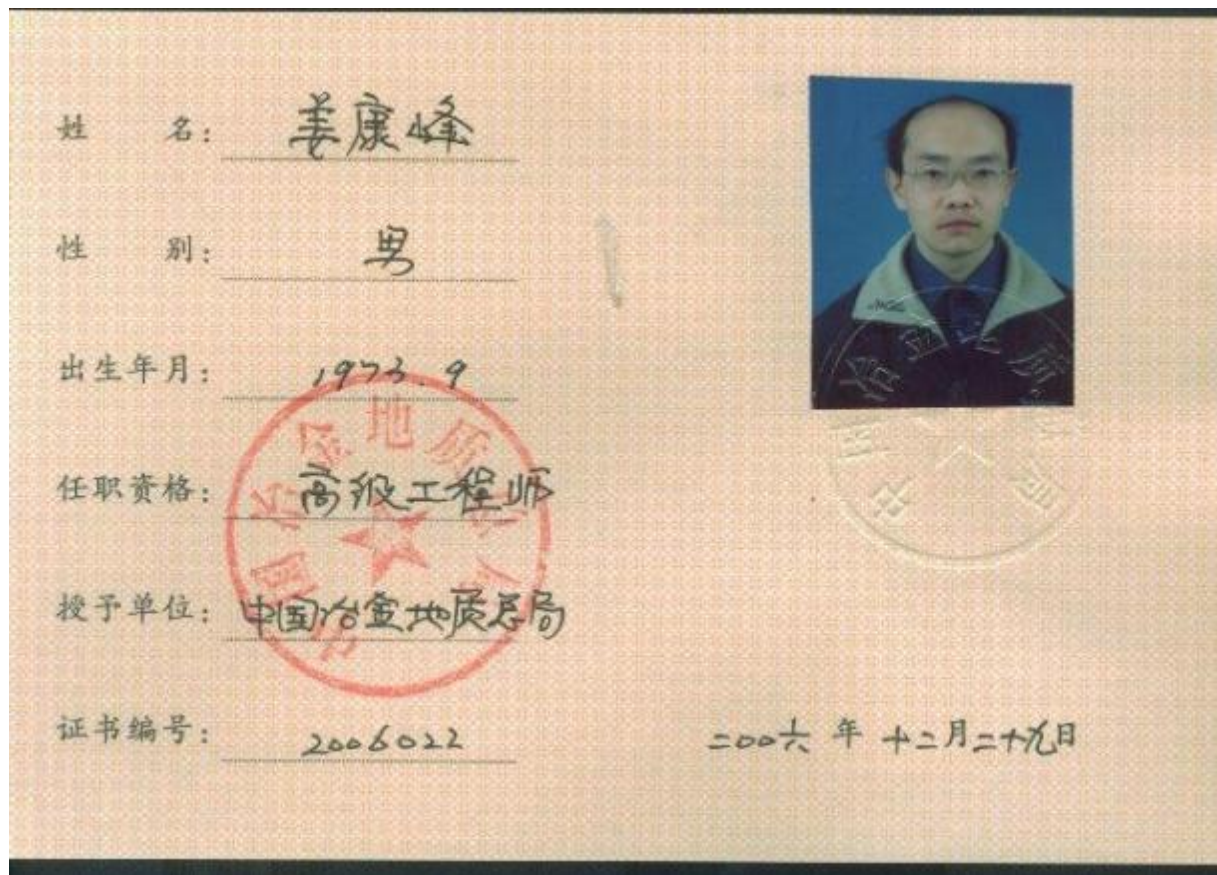 姓 名：姜康峰
性 别：男
出生年月：1973.9
任职资格：高级工程师
授予单位：中国冶金地质总局
证书编号：2006022
二〇〇六年十二月二十九日
中国冶金地质总局